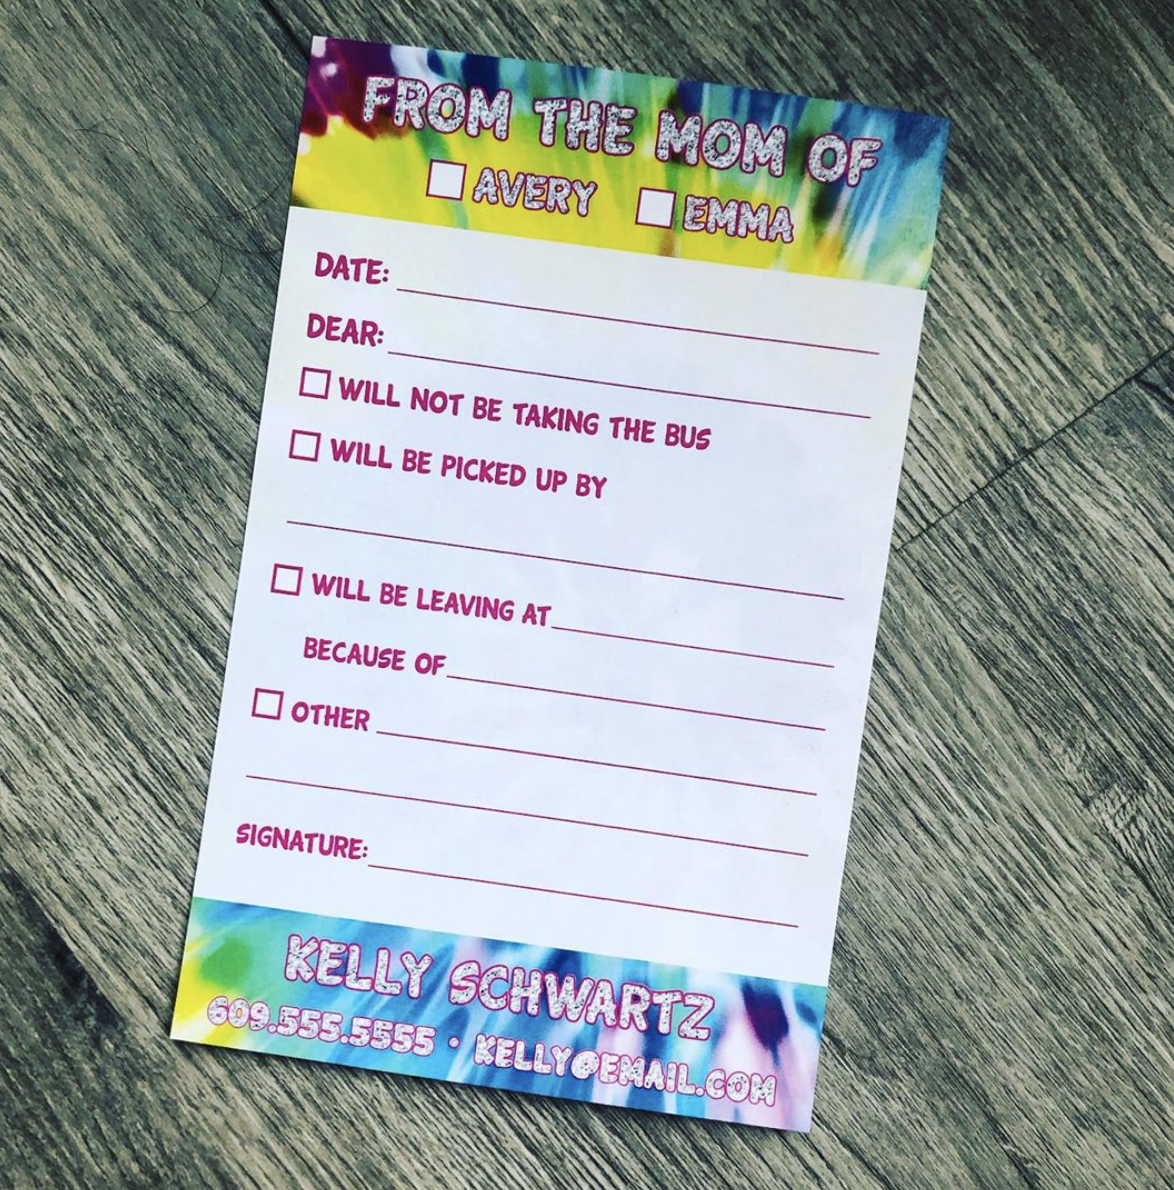 FROM THE MOM OF
AVERY EMMA
DATE:
DEAR:
WILL NOT BE TAKING THE BUS
WILL BE PICKED UP BY
WILL BE LEAVING AT
BECAUSE OF
OTHER
SIGNATURE:
KELLY SCHWARTZ
609.555.5555 • KELLY@EMAIL.COM